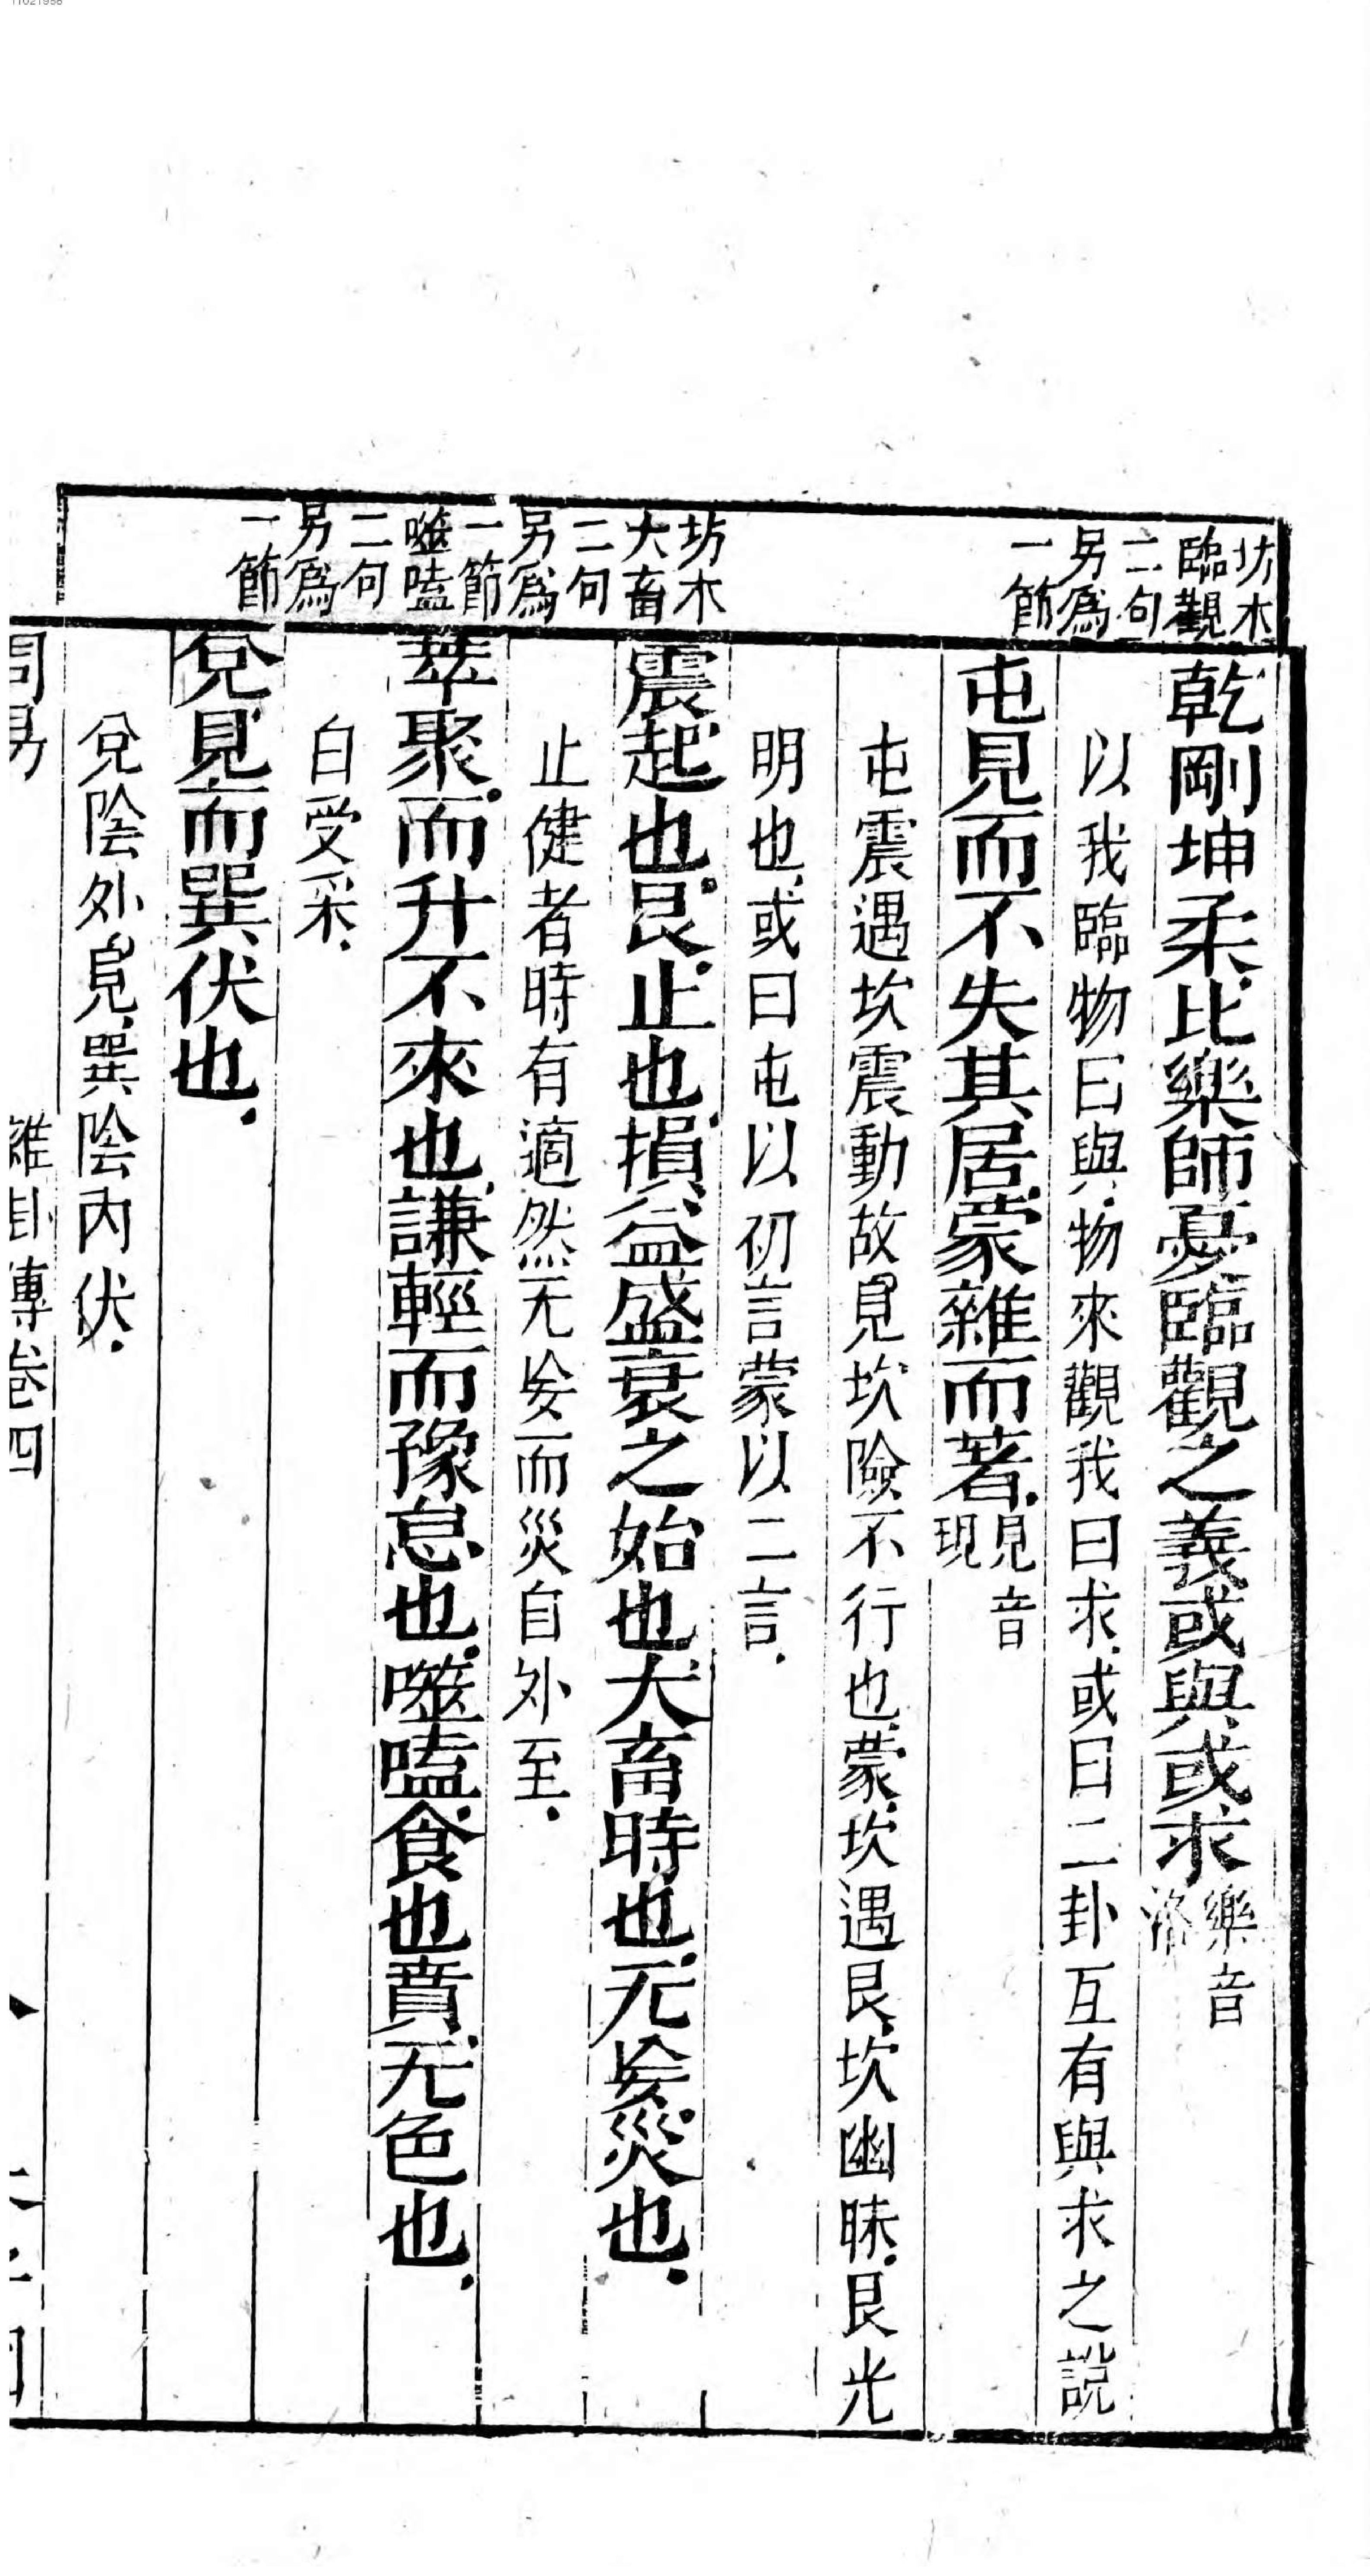 11021958
坊本
臨觀
二句
另為
一節
坊本
大畜
二句
另為
一節
噬嗑
二句
另為
一節
乾剛坤柔比樂師憂臨觀之義或與或求 樂音洛
以我臨物曰與物來觀我曰求或曰二卦互有與求之說
屯見而不失其居蒙雜而著 見音現
屯震遇坎震動故見坎險不行也蒙坎遇艮坎幽昧艮光
明也或曰屯以初言蒙以二言
震起也艮止也損益盛衰之始也大畜時也无妄災也
止健者時有適然无妄而災自外至
萃聚而升不來也謙輕而豫怠也噬嗑食也賁无色也
白受采
兌見而巽伏也
兌陰外見巽陰內伏
周易 雜卦傳卷四